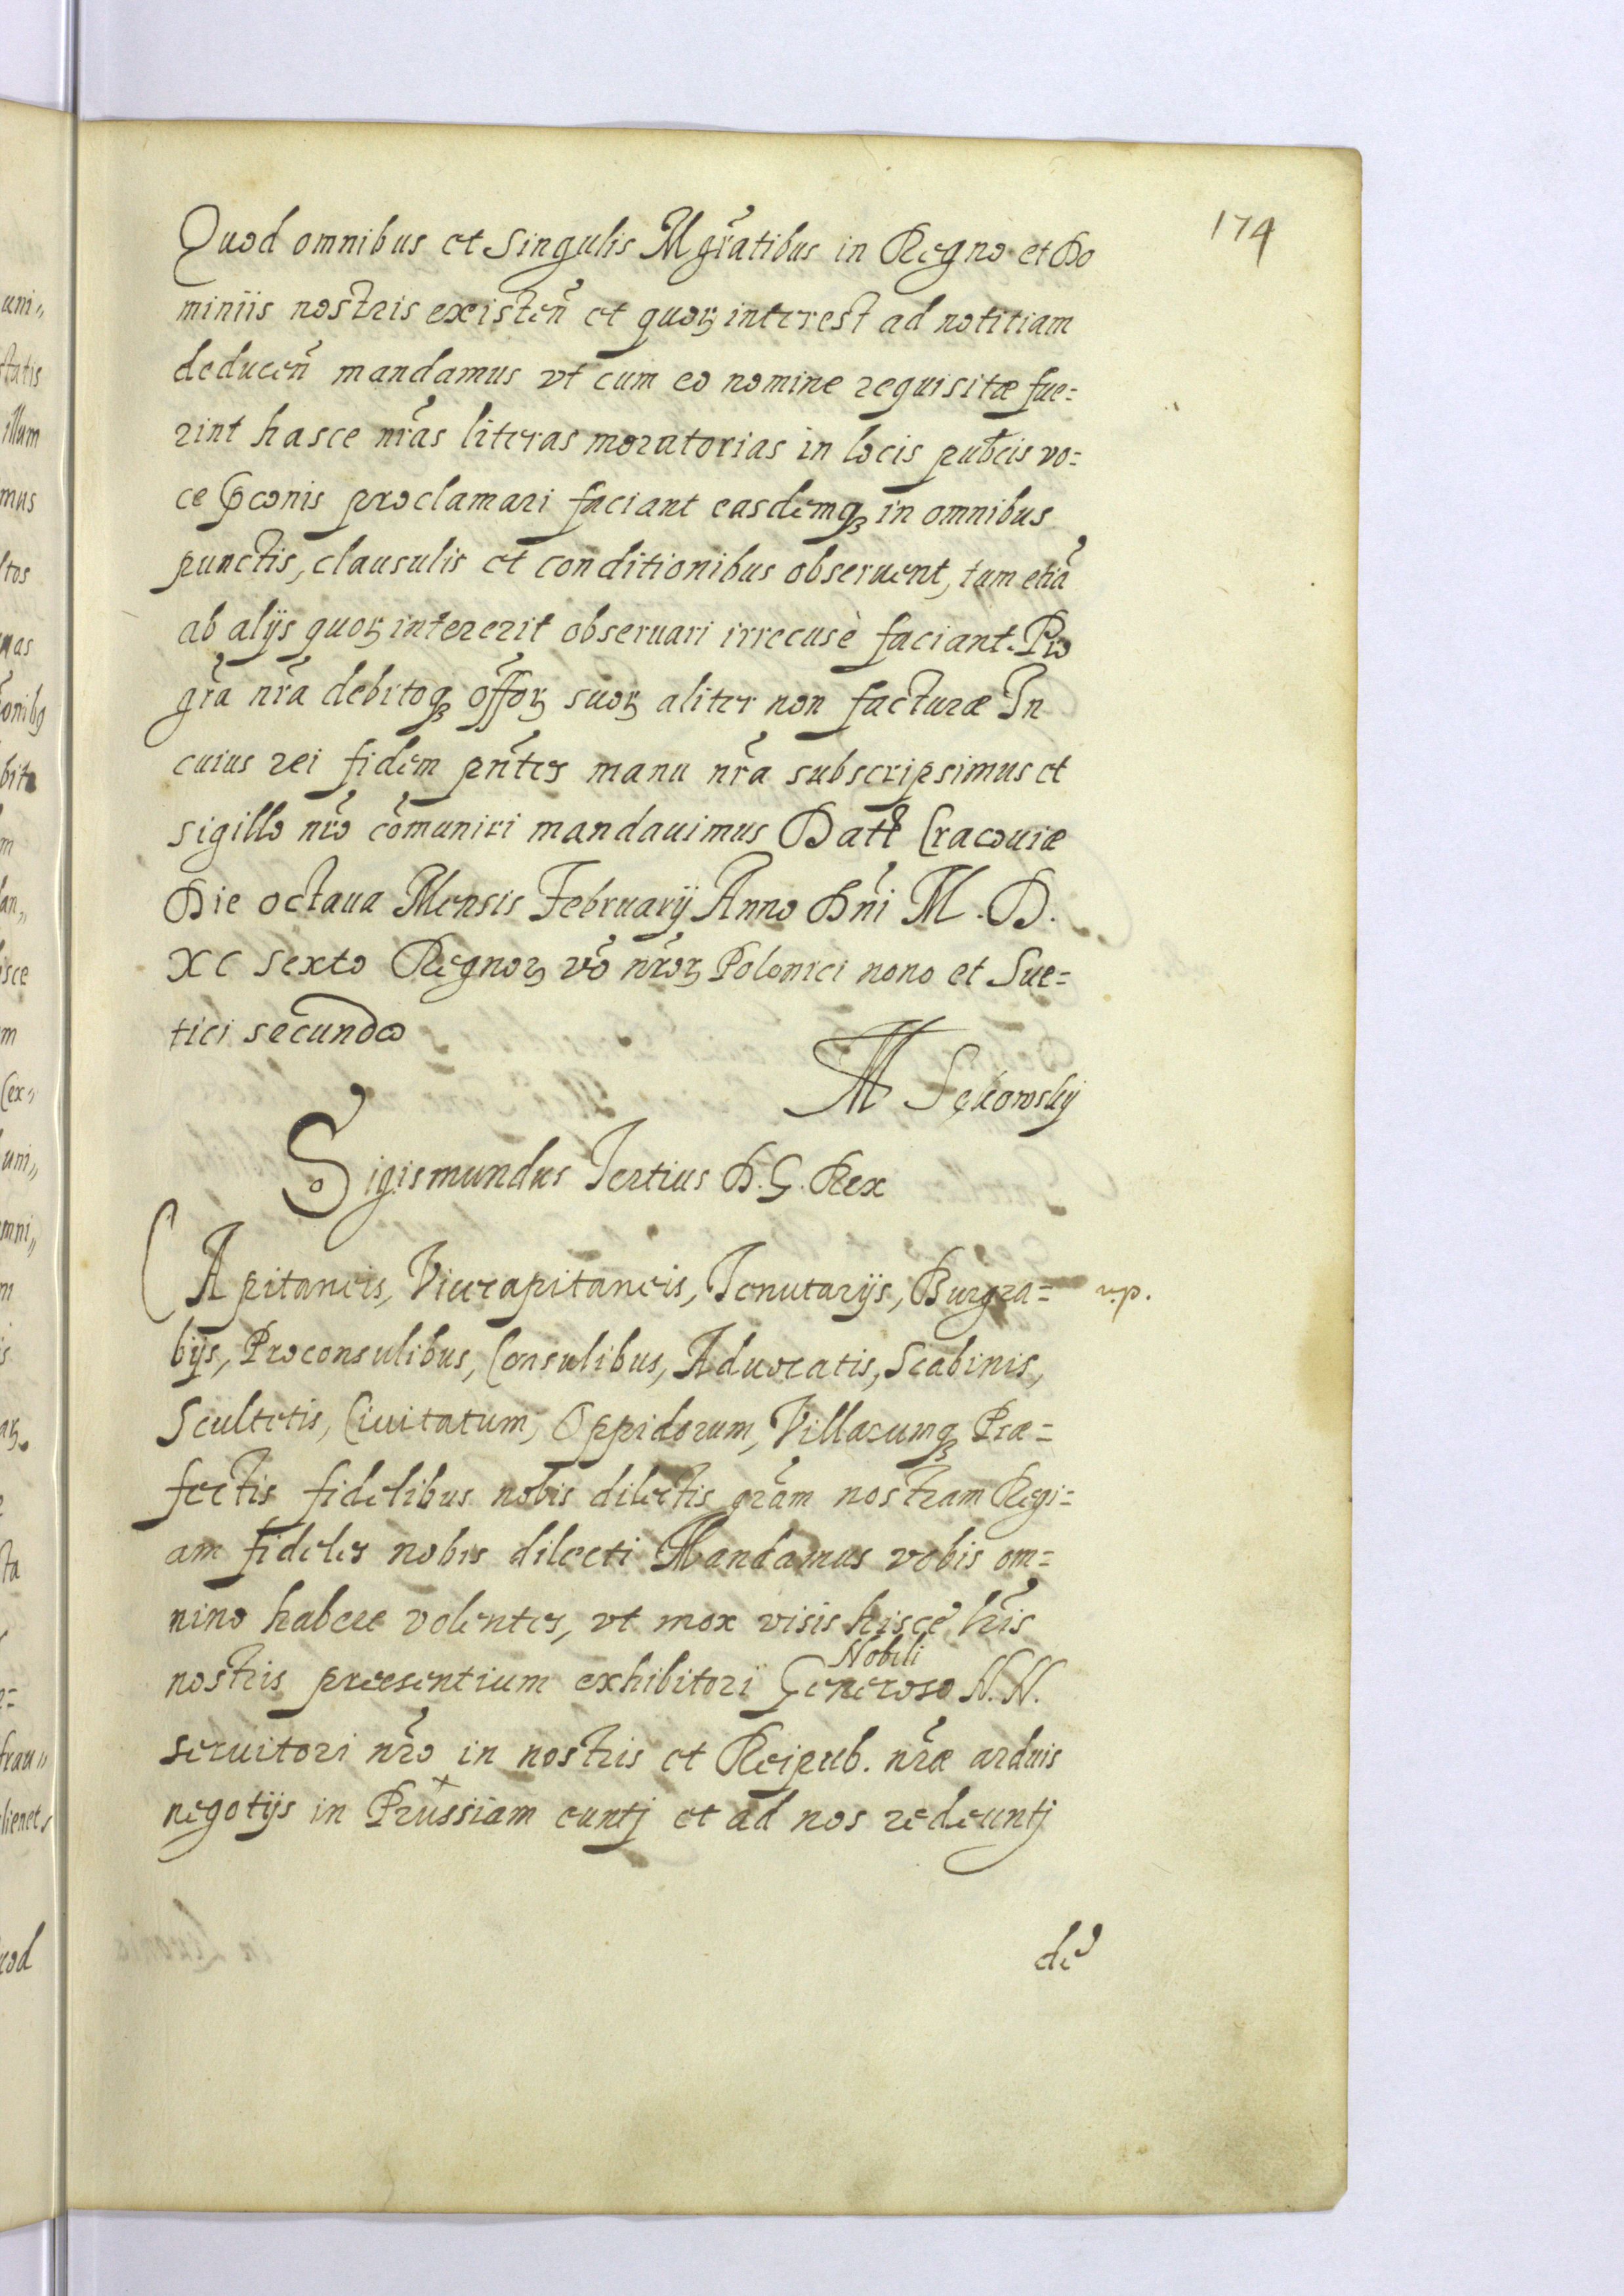 174
Quod omnibus et singulis Mgr̃atibus in Regno et Do
miniis nostris existeñ et quorꝫ interest ad notitiam
deduceñ mandamus vt cum eo nomine requisitæ fue=
rint hasce nr̃as literas moratorias in locis publcis vo=
ce p̃conis proclamari faciant easdemqꝫ in omnibus
punctis, clausulis et conditionibus obseruent, tum etiã
ab alijs quorꝫ intererit obseruari irrecusè faciant. Pro
gr̃a nr̃a debitoqꝫ offõrꝫ suorꝫ aliter non facturæ In
cuius rei fidem pñtes manu nr̃a subscripsimus et
sigillo nr̃o cõmuniri mandauimus Datt Cracouiæ
Die octaua Mensis February Anno Dñi M. D.
XC sexto Regnorꝫ võ nr̃orꝫ Polonici nono et Sue=
tici secundo
M Sękowsky
Sigismundus Tertius D. G. Rex
CApitaneis, Vicecapitaneis, Tenutarijs, Burgra= n.p.
bijs, Proconsulibus, Consulibus, Aduocatis, Scabinis,
Scultetis, Ciuitatum, Oppidorum, Villarumqꝫ Præ=
fectis fidelibus nobis dilectis gr̃am nostram Regi=
am fideles nobis dilecti Mandamus vobis om=
nino habere volentes, vt mox visis hisce lr̃is
Nobili
nostris præsentium exhibitori Generoso N. N.
seruitori nr̃o in nostris et Reipub. nr̃æ arduis
negotijs in Prussiam euntj et ad nos redeuntj
de